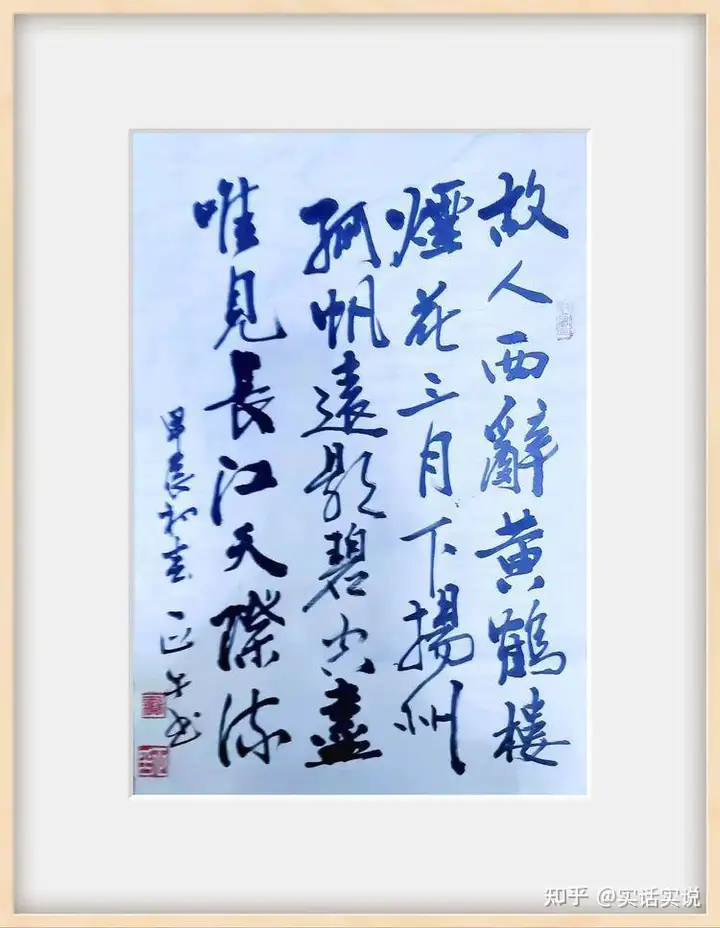 故人西辭黄鶴樓
煙花三月下揚州
孤帆遠影碧空盡
唯見長江天際流
甲辰初春 正 书
知乎 @实话实说